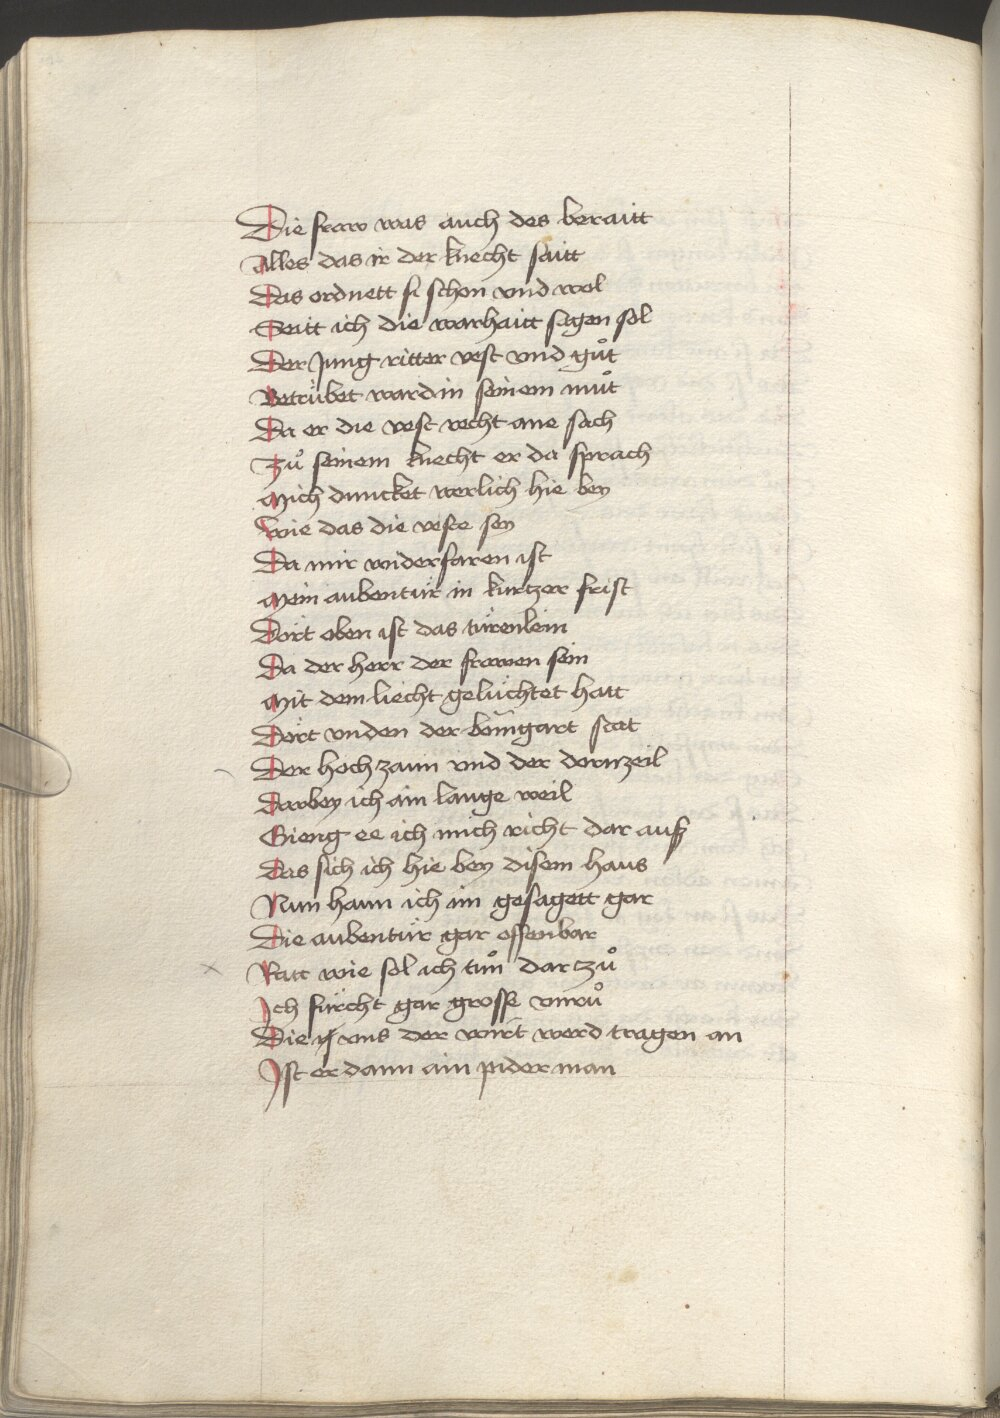 Die fraw was auch des beraitt
Alles das ir der knecht saitt
Das ordnett si schon vnd wol
Seitt ich die warhaitt sagen sol
Der Jung ritter vest vnd guͦt
Betrübet ward in seinem muͦt
Da er die vest recht ane sach
Zuͦ seinem knecht er da sprach
Mich duncket werlich hie bey
Wie das die veste sey
Da mir vnderfaren ist
Mein aubentür in kurtzer frist
Dört oben ist das türenlein
Da der herr der frawen sein
Mit dem liecht gelüchtet hatt
Dört vnden der bömgart statt
Der hoch zaun vnd der dornzeil
Darbey ich ain lange weil
Gieng ee ich mich richt dar auß
Das sich ich hie bey disem haus
Nun haun ich im gesagett gar
Die aubentür gar offenbar
Ratt wie sol ich tuͦn dar zuͦ
Ich fürcht gar grosse vnruͦ
Die vns der wirt werd tragen an
Ist er dann ain pider man